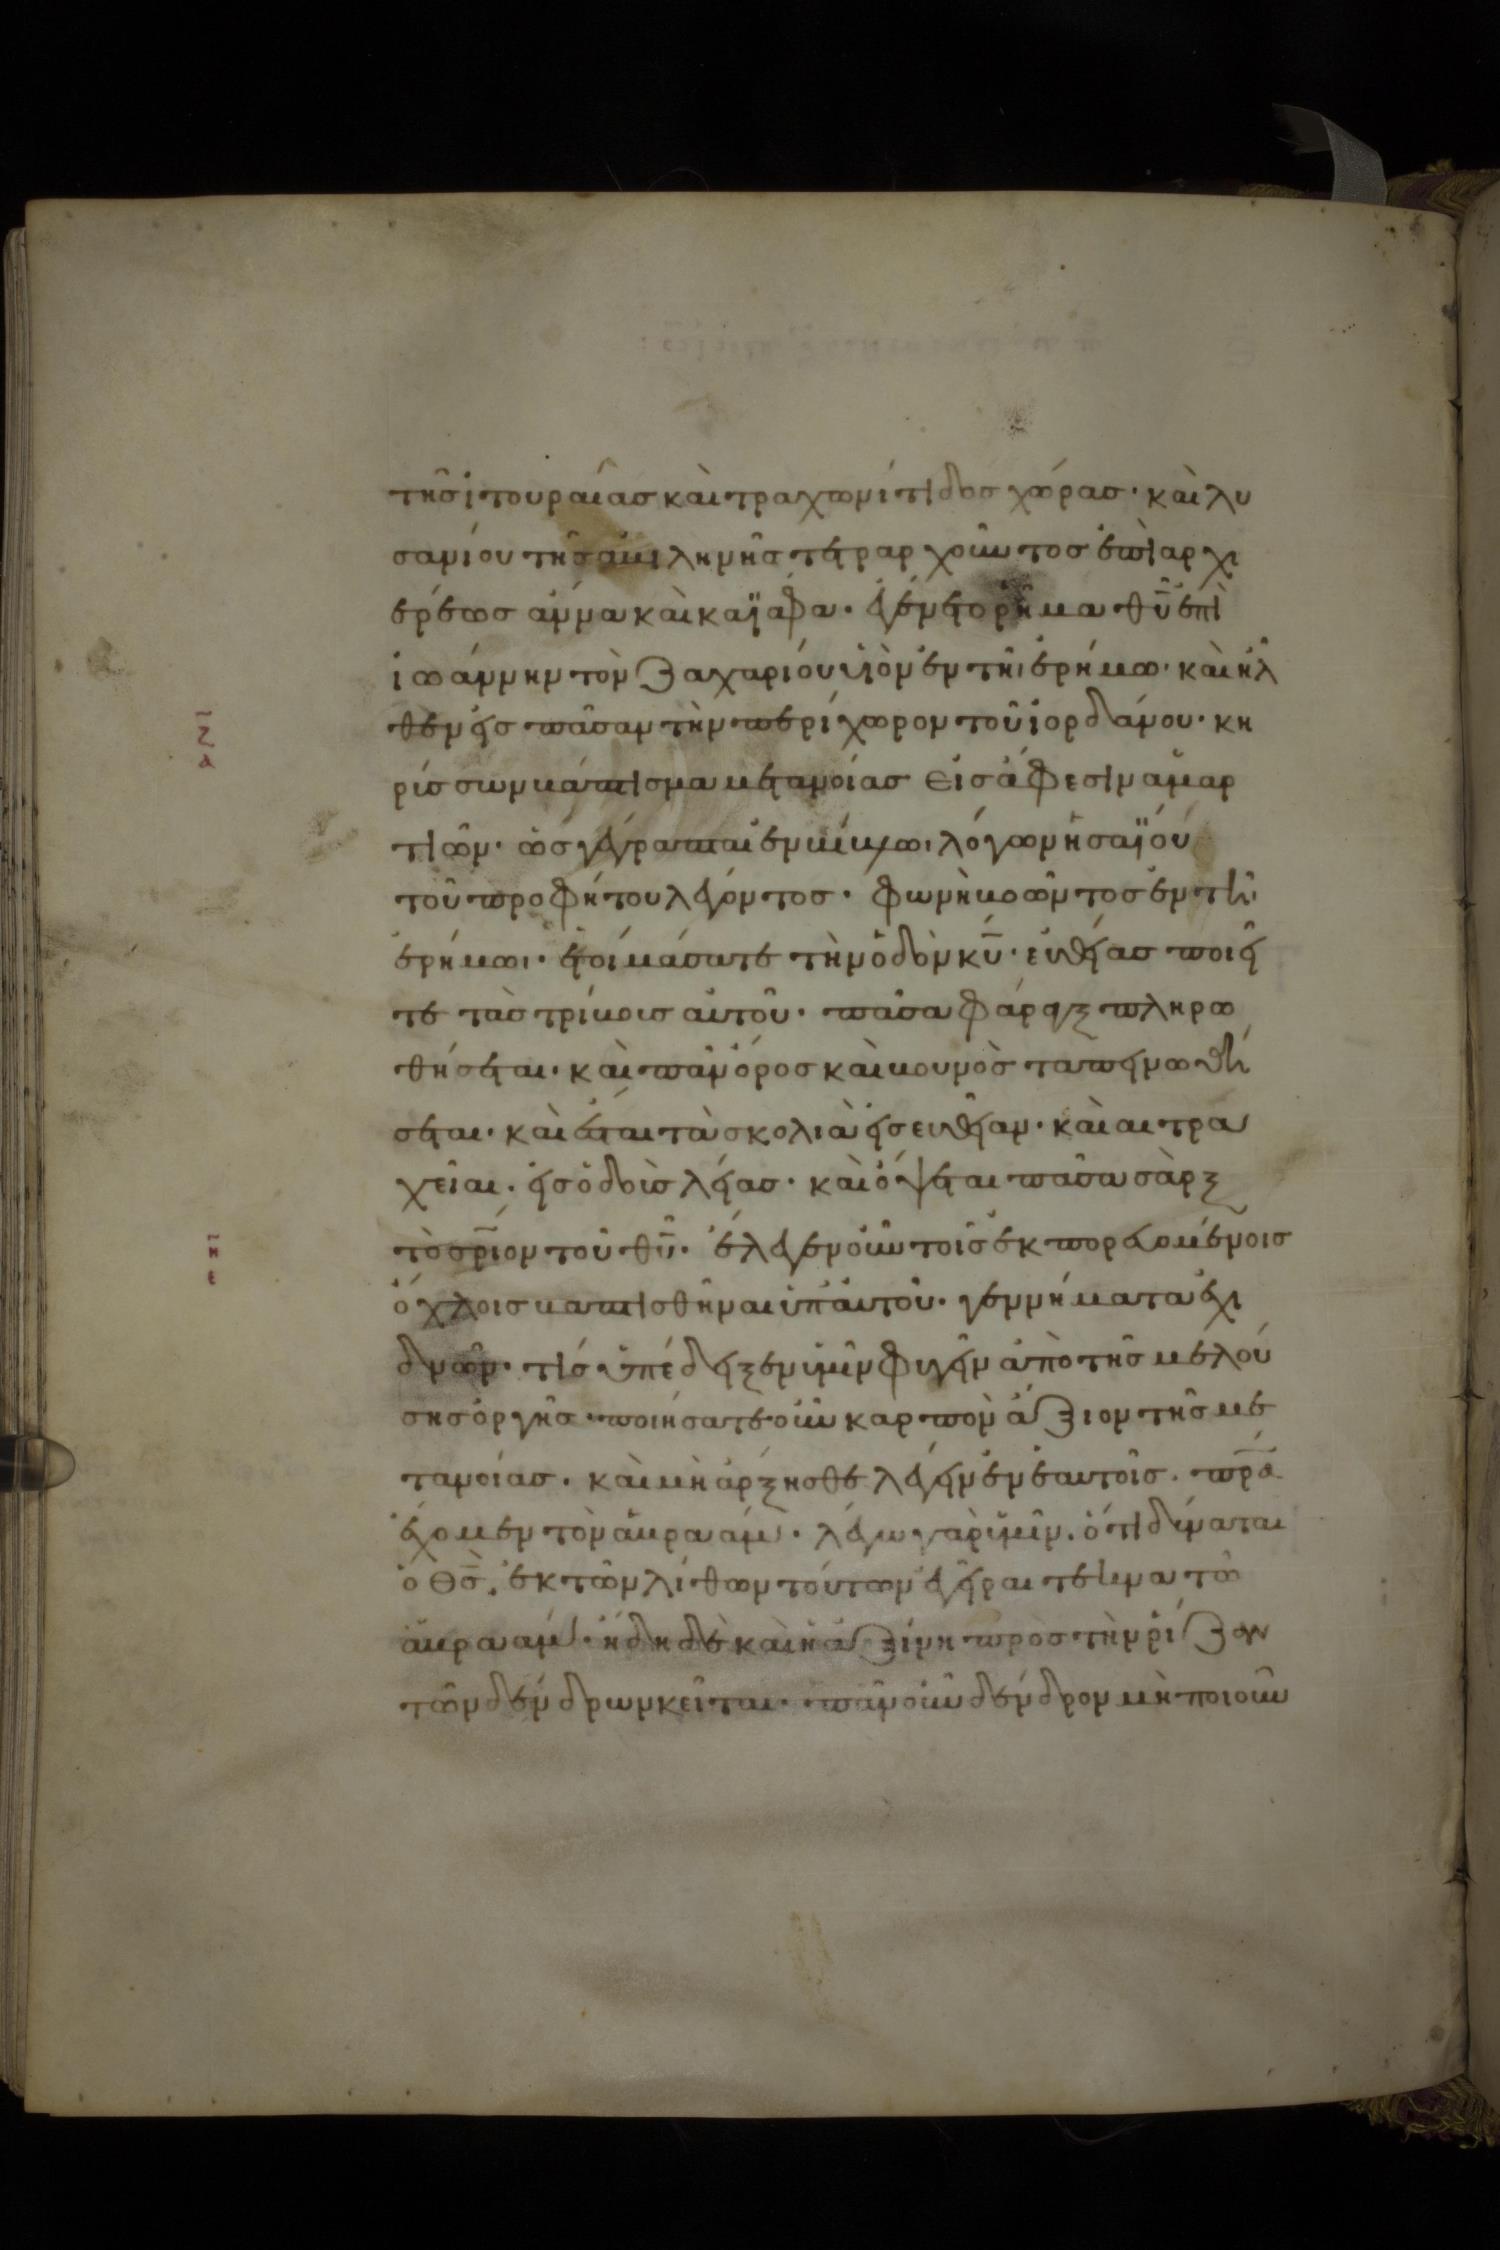 τῆς ἰτουραίας καὶ τραχωνίτιδος χώρας· καὶ λυ
σανίου τῆς ἀβιληνῆς τετραρχοῦντος ἐπὶ ἀρχι
ερέως ἄννα καὶ καϊάφα· ἐγένετο ῥῆμα θῦ ἐπὶ
ἰωάννην τὸν Ζαχαρίου υἱὸν ἐν τῆι ἐρήμω· καὶ ἦλ
ῑ
ζ
α
θεν εἰς πᾶσαν τὴν περίχωρον τοῦ ἰορδάνου· κη
ρίσσων βάπτισμα μετανοίας εἰς ἄφεσιν ἁμαρ
τιῶν· ὡς γέγραπται ἐν βίβλω λόγων ἠσαΐου
τοῦ προφήτου λέγοντος· φωνὴ βοῶντος ἐν τῆι
ἐρήμωι· ἑτοιμάσατε τὴν ὁδὸν κῡ· εὐθείας ποιεῖ
τε τὰς τρίβους αὐτοῦ· πᾶσα φάραγξ πληρω
θήσεται· καὶ πᾶν ὄρος καὶ βουνὸς ταπεινωθή
σεται· καὶ ἔσται τὰ σκολιὰ εἰς εὐθεῖαν· καὶ αἱ τρα
χεῖαι· εἰς ὁδοὺς λείας· καὶ ὄψεται πᾶσα σὰρξ
ῑ
η
ε
τὸ σρ̄ιον τοῦ θῡ· ἔλεγεν οὖν τοῖς ἐκπορευομένοις
ὄχλοις βαπτισθῆναι ὑπ' αὐτοῦ· γεννήματα ἐχι
δνῶν· τίς ὑπέδειξεν ὑμῖν φυγεῖν ἀπὸ τῆς μελού
σης ὀργῆς· ποιήσατε οὖν καρπὸν ἄξιον τῆς με
τανοίας· καὶ μὴ ἄρξησθε λέγειν ἐν ἑαυτοῖς· πρ̄α
ἔχομεν τὸν ἀβραάμ· λέγω γὰρ ὑμῖν· ὅτι δύναται
ὁ θς̄· ἐκ τῶν λίθων τούτων ἐγεῖραι τέκνα τῶ
ἀβραάμ· ἤδη δὲ καὶ ἡ ἀξίνη πρὸς τὴν ῥίζαν
τῶν δένδρων κεῖται· πᾶν οὖν δένδρον μὴ ποιοῦν